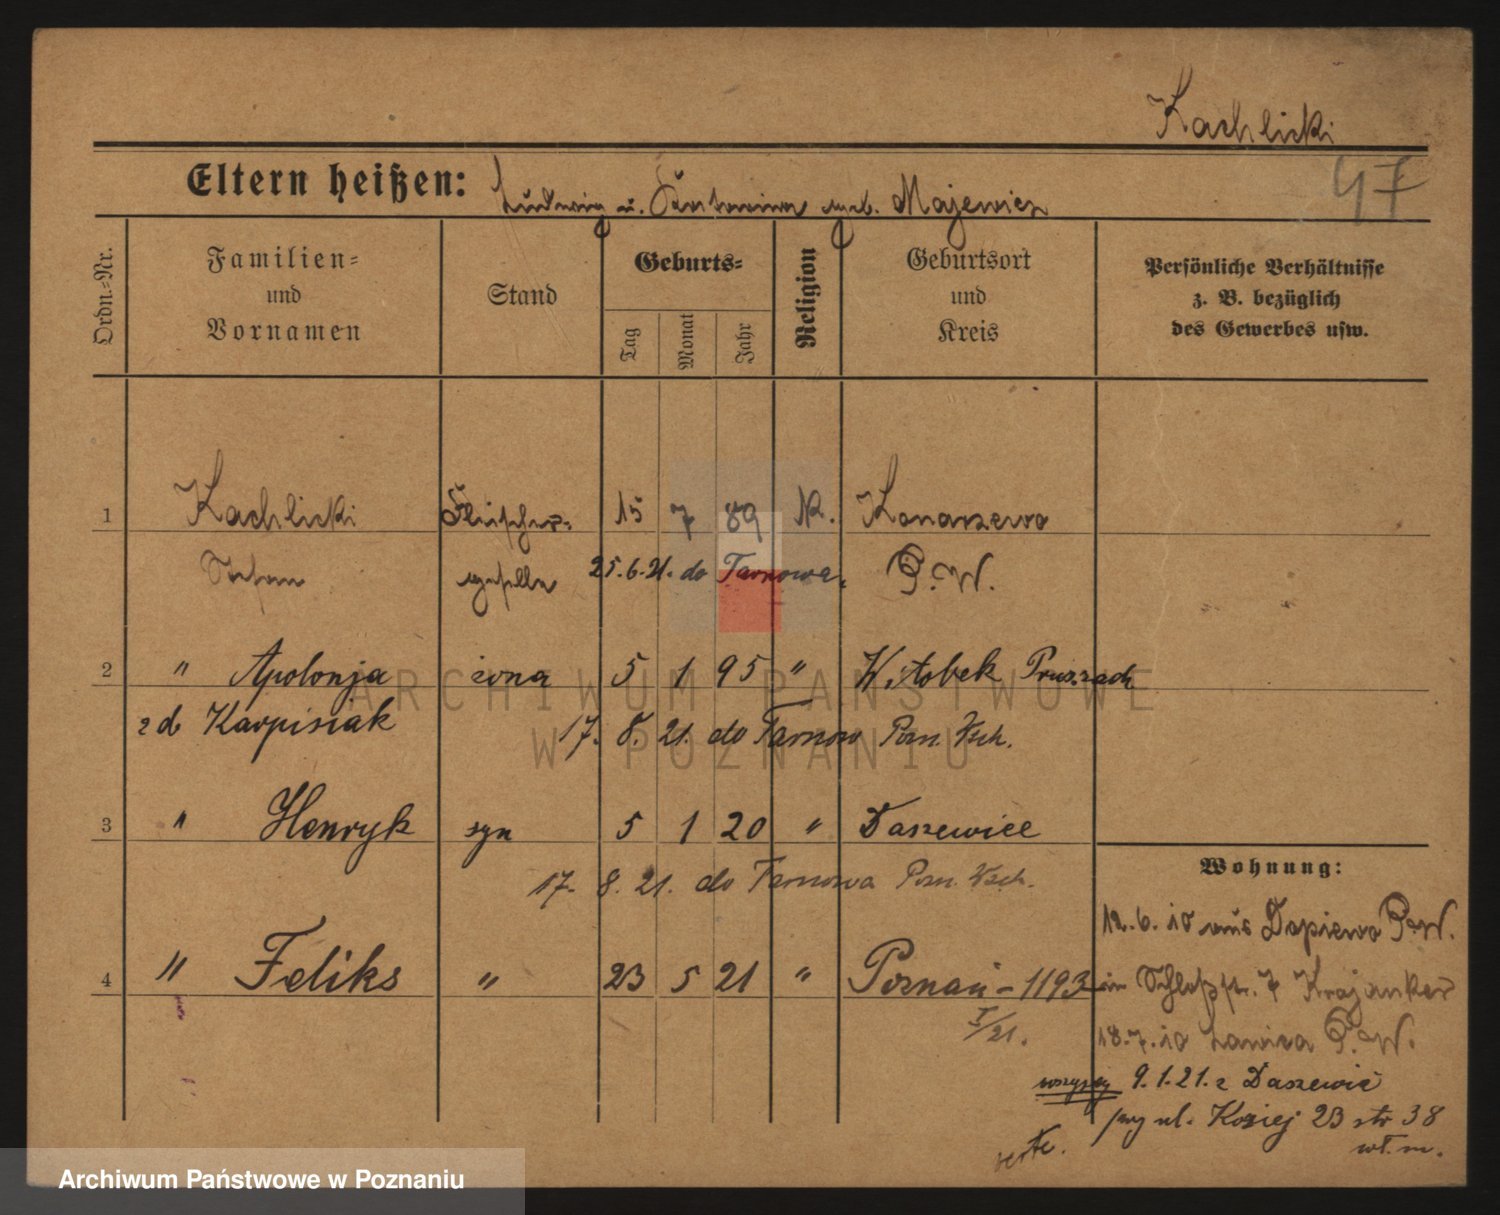 Kachlicki
47
Eltern heißen: Ludwig u. Antonina geb. Majewicz
Ordn.-Nr.
Familien-
und
Vornamen
Stand
Geburts-
Tag
Monat
Jahr
Religion
Geburtsort
und
Kreis
Persönliche Verhältnisse
z. B. bezüglich
des Gewerbes usw.
1 Kachlicki Fleischer- 15 7 89 K. Konarzewo
Stefan geselle 25.6.21. do Tarnowa. P.W.
2 " Apolonja żona 5 1 95 " Witobek
z d. Karpisiak 17. 8. 21. do Tarnow Pozn. Wsch.
3 " Henryk syn 5 1 20 " Daszewice
17. 8. 21. do Tarnowa Pozn. Wsch.
4 " Feliks " 23 5 21 " Poznań - 1193
I/21.
Wohnung:
12.6.10 aus Dopiewo P.W.
in Schloßstr. 7 Krajanker
18.7.10 Lawica P.W.
wszyscy 9.1.21. z Daszewic
przy ul. Koziej 23 str 38
wł. m.
verte.
ARCHIWUM PAŃSTWOWE
W POZNANIU
Archiwum Państwowe w Poznaniu